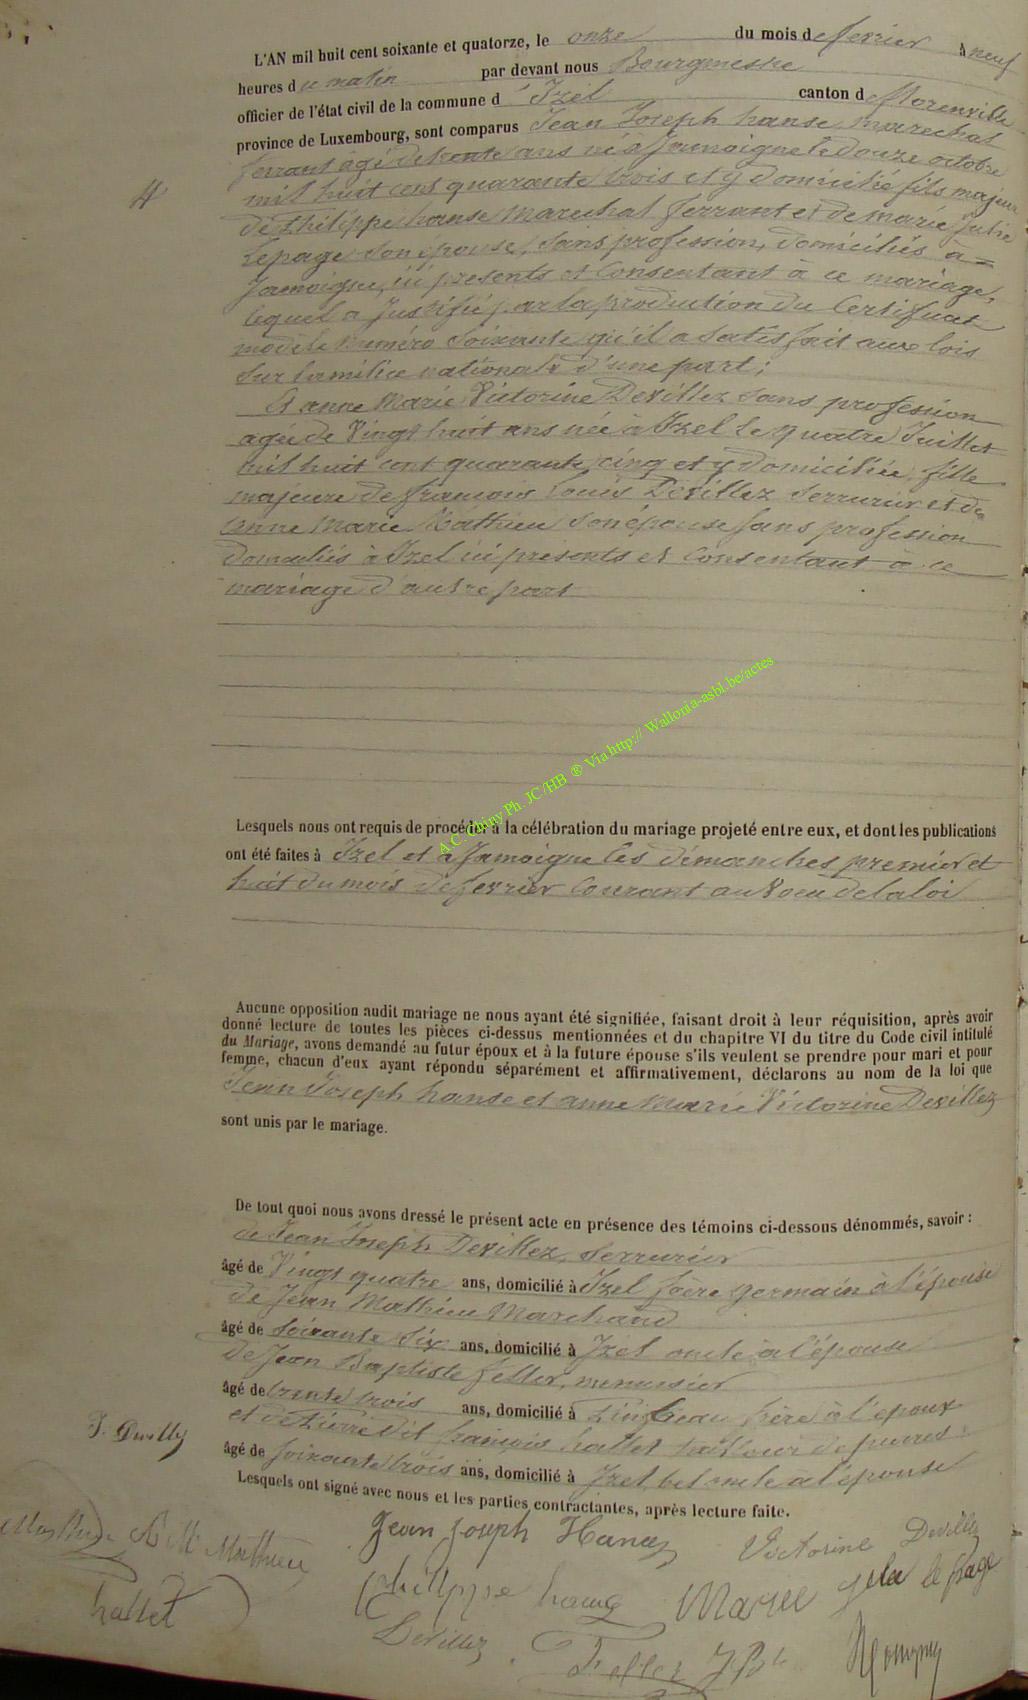 L'AN mil huit cent soixante et quatorze, le onze du mois de fevrier à neuf
heures du matin par devant nous Bourgmestre
officier de l'état civil de la commune d'Izel canton de florenville
province de Luxembourg, sont comparus Jean Joseph hanse marechal
ferrant âgé de trente ans né à Jamoigne le douze octobre
mil huit cent quarante trois et y domicilié fils majeur
de philippe hanse Marechal ferrant et de marie Julie
Lepage son épouse, sans profession, domiciliés à
Jamoigne, ici présents et Consentant à ce mariage,
lequel a Justifié par la production du Certificat
modele Numéro Soixante qu'il a satisfait aux lois
sur la milice nationale d'une part;
Et anne Marie Victorine Devillez sans profession
agée de Vingt huit ans née à Izel le quatre Juillet
mil huit cent quarante cinq et y domiciliée, fille
majeure de françois Louis Devillez serrurier et de
anne Marie Mathieu son épouse sans profession
domiciliés à Izel ici présents et Consentant à ce
mariage d'autre part
Lesquels nous ont requis de procéder à la célébration du mariage projeté entre eux, et dont les publications
ont été faites à Izel et à Jamoigne les dimanches premier et
huit du mois de fevrier Courant au Voeu de la loi
Aucune opposition audit mariage ne nous ayant été signifiée, faisant droit à leur réquisition, après avoir
donné lecture de toutes les pièces ci-dessus mentionnées et du chapitre VI du titre du Code civil intitulé
du Mariage, avons demandé au futur époux et à la future épouse s'ils veulent se prendre pour mari et pour
femme, chacun d'eux ayant répondu séparément et affirmativement, déclarons au nom de la loi que
Jean Joseph hanse et anne Marie Victorine Devillez
sont unis par le mariage.
De tout quoi nous avons dressé le présent acte en présence des témoins ci-dessous dénommés, savoir :
de Jean Joseph Devillez, serrurier
âgé de Vingt quatre ans, domicilié à Izel frère germain à l'épouse
de Jean Mathieu Marchand
âgé de soixante six ans, domicilié à Izel oncle à l'épouse
de Jean Baptiste feller, menuisier
âgé de trente trois ans, domicilié à frère à l'epoux
et de Pierre dit françois hallet tailleur de pierres
âgé de soixante trois ans, domicilié à Izel, bel oncle a l'épouse
Lesquels ont signé avec nous et les parties contractantes, après lecture faite.
J. Devilly
A M Mathieu
Jean Joseph Hanse
Victorine Devillez
hallet
philippe hanse
Marie Julie le page
Devillez
Feller J Bte
A.C. Chiny Ph. JC/HB ® Via http:// Wallonia-asbl.be/actes